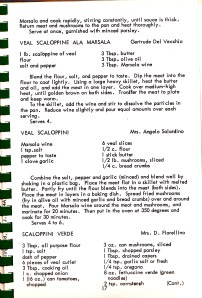 Marsala and cook rapidly, stirring constantly, until sauce is thick.
Return meat and mushrooms to the pan and heat thoroughly.
Serve at once, garnished with minced parsley.
VEAL SCALOPPINE ALA MARSALA Gertrude Del Vecchio
1 lb. scaloppine of veal 3 Tbsp. butter
flour 3 Tbsp. olive oil
salt and pepper 3 Tbsp. Marsala wine
Blend the flour, salt, and pepper to taste. Dip the meat into the
flour to coat lightly. Using a large heavy skillet, heat the butter
and oil, and add the meat in one layer. Cook over medium-high
heat, until golden brown on both sides. Transfer the meat to plate
and keep warm.
To the skillet, add the wine and stir to dissolve the particles in
the pan. Reduce wine slightly and pour equal amounts over each
serving.
Serves 4.
VEAL SCALOPPINI Mrs. Angelo Salandino
Marsala wine 6 veal slices
1 tsp. salt 1/2 c. flour
pepper to taste 1 stick butter
1 clove garlic 1/2 lb. mushrooms, sliced
1/4 c. bread crumbs
Combine the salt, pepper and garlic (minced) and blend well by
shaking in a plastic bag. Place the meat flat in a skillet with melted
butter. Partly fry until the flour blends into the meat (both sides).
Place the meat in layers in a baking dish. Spread fried mushrooms
(fry in olive oil with minced garlic and bread crumbs) over and around
the meat. Pour Marsala wine around the meat and mushrooms, and
marinate for 20 minutes. Then put in the oven at 350 degrees and
cook for 30 minutes.
Serves 4 to 6.
SCALOPPINI VERDE Mrs. D. Fiorellino
3 Tbsp. all purpose flour 3 oz. can mushrooms, sliced
1 tsp. salt 1 Tbsp. chopped parsley
dash of pepper 1 Tbsp. drained capers
6 pieces of veal cutlet 1/4 tsp. garlic salt or fresh
3 Tbsp. cooking oil 1/4 tsp. oregano
c. chopped onion 8 oz. fettuccine verde (green
1 (16 oz.) can tomatoes, noodles)
chopped 2 tsp. cornstarch (Cont.)
17